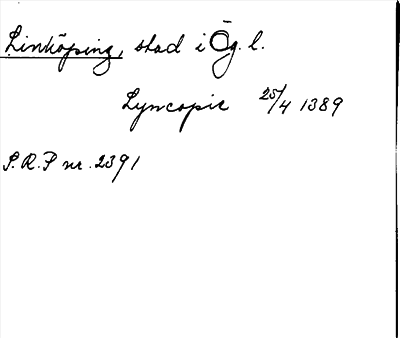 Linköping, stad i Ög. l.
Lyncopie 25/4 1389
S.R.P nr. 2391